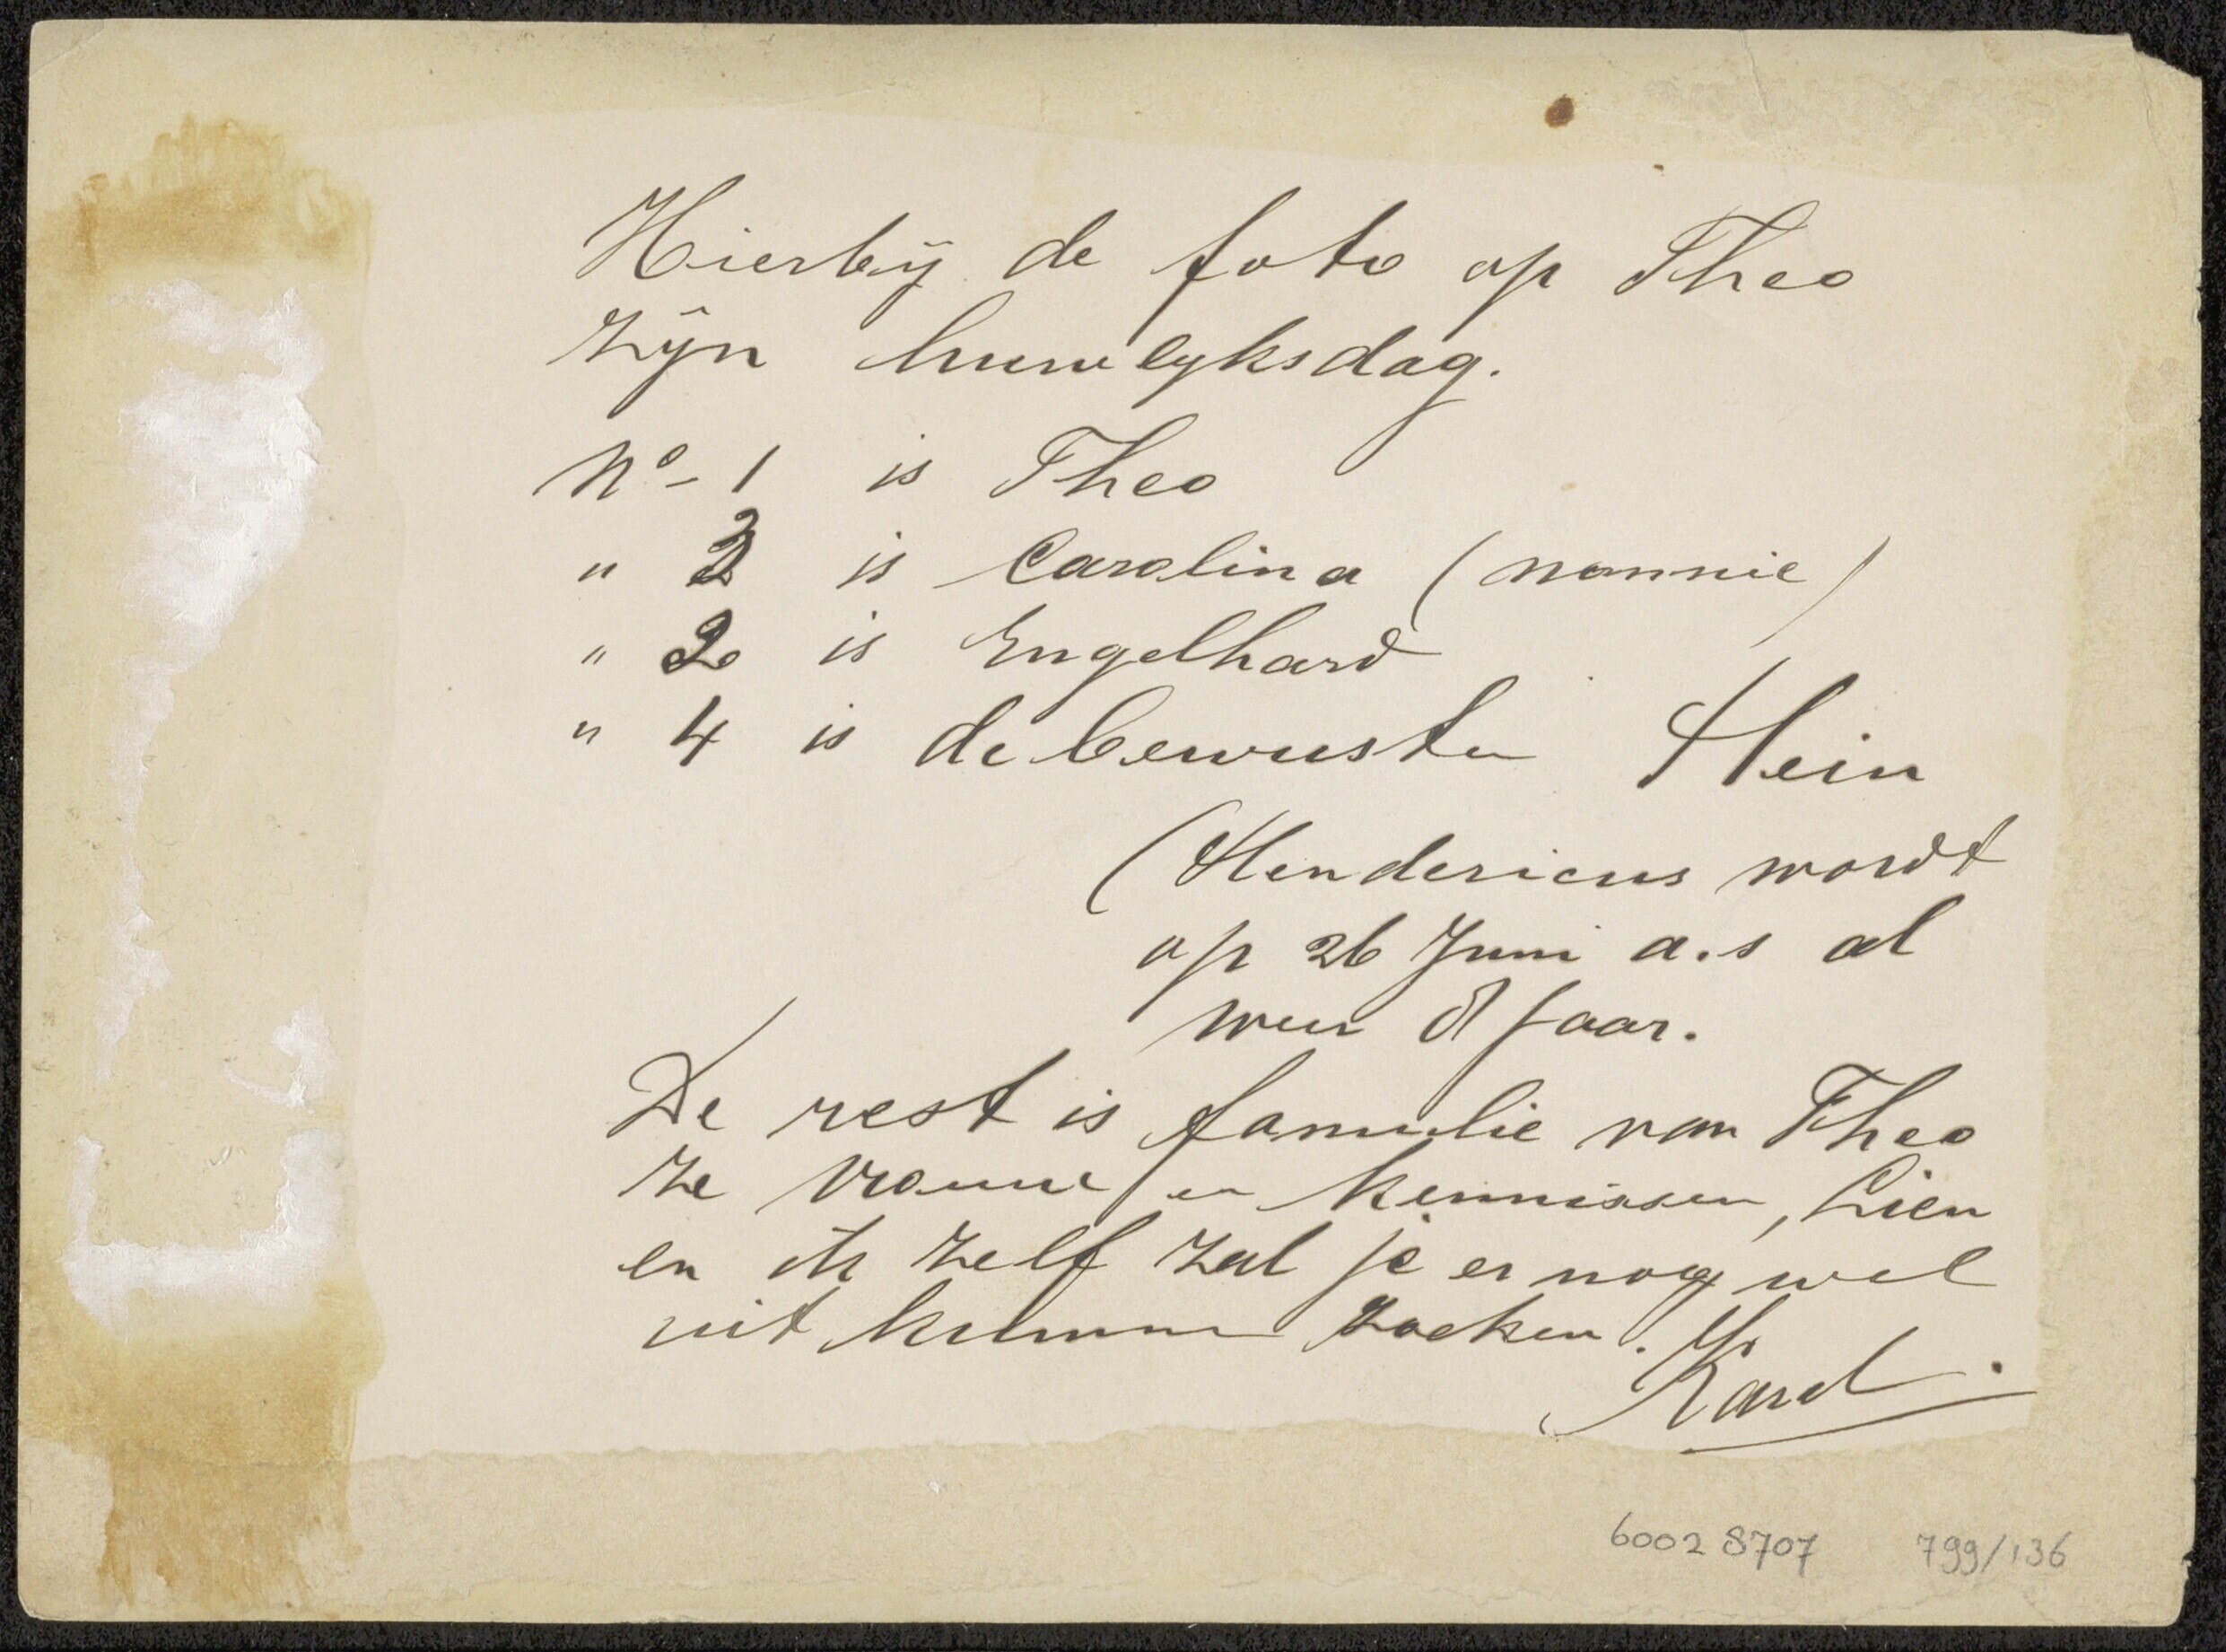 Hierbij de foto op Theo
zijn huwelyksdag.
No- 1 is Theo
" 3 is Carolina (nonnie)
" 2 is Engelhard
" 4 is de bewuste Hein
(Hendericus wordt
op 26 Juni a.s al
weer 8 jaar.
De rest is familie van Theo
ze vrouw en kennissen, Lien
en ik zelf zal je er nog wel
uit kunnen zoeken.
Karel
6002 8707 799/136